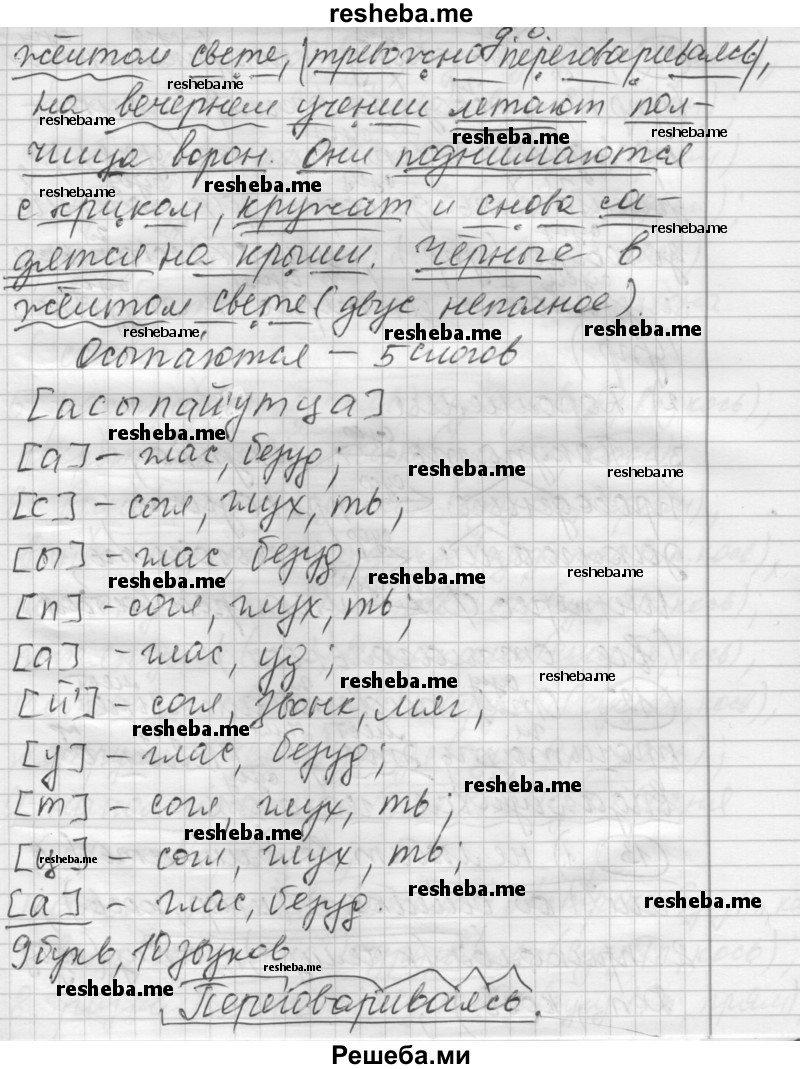 resheba.me
д.о.
жёлтом свете, |тревожно переговариваясь|,
на вечернем учении летают пол-
чища ворон. Они поднимаются
с криком, кружат и снова са-
дятся на крыши. Чёрные в
жёлтом свете (двус неполное).
Осыпа́ются – 5 слогов
[асыпай'утца]
[а] – глас, безуд;
[с] – согл, глух, тв;
[ы] – глас, безуд;
[п] – согл, глух, тв;
[а] – глас, уд;
[й'] – согл, звонк, мяг;
[у] – глас, безуд;
[т] – согл, глух, тв;
[ц] – согл, глух, тв;
[а] – глас, безуд.
9 букв, 10 звуков
Переговариваясь.
Решеба.ми